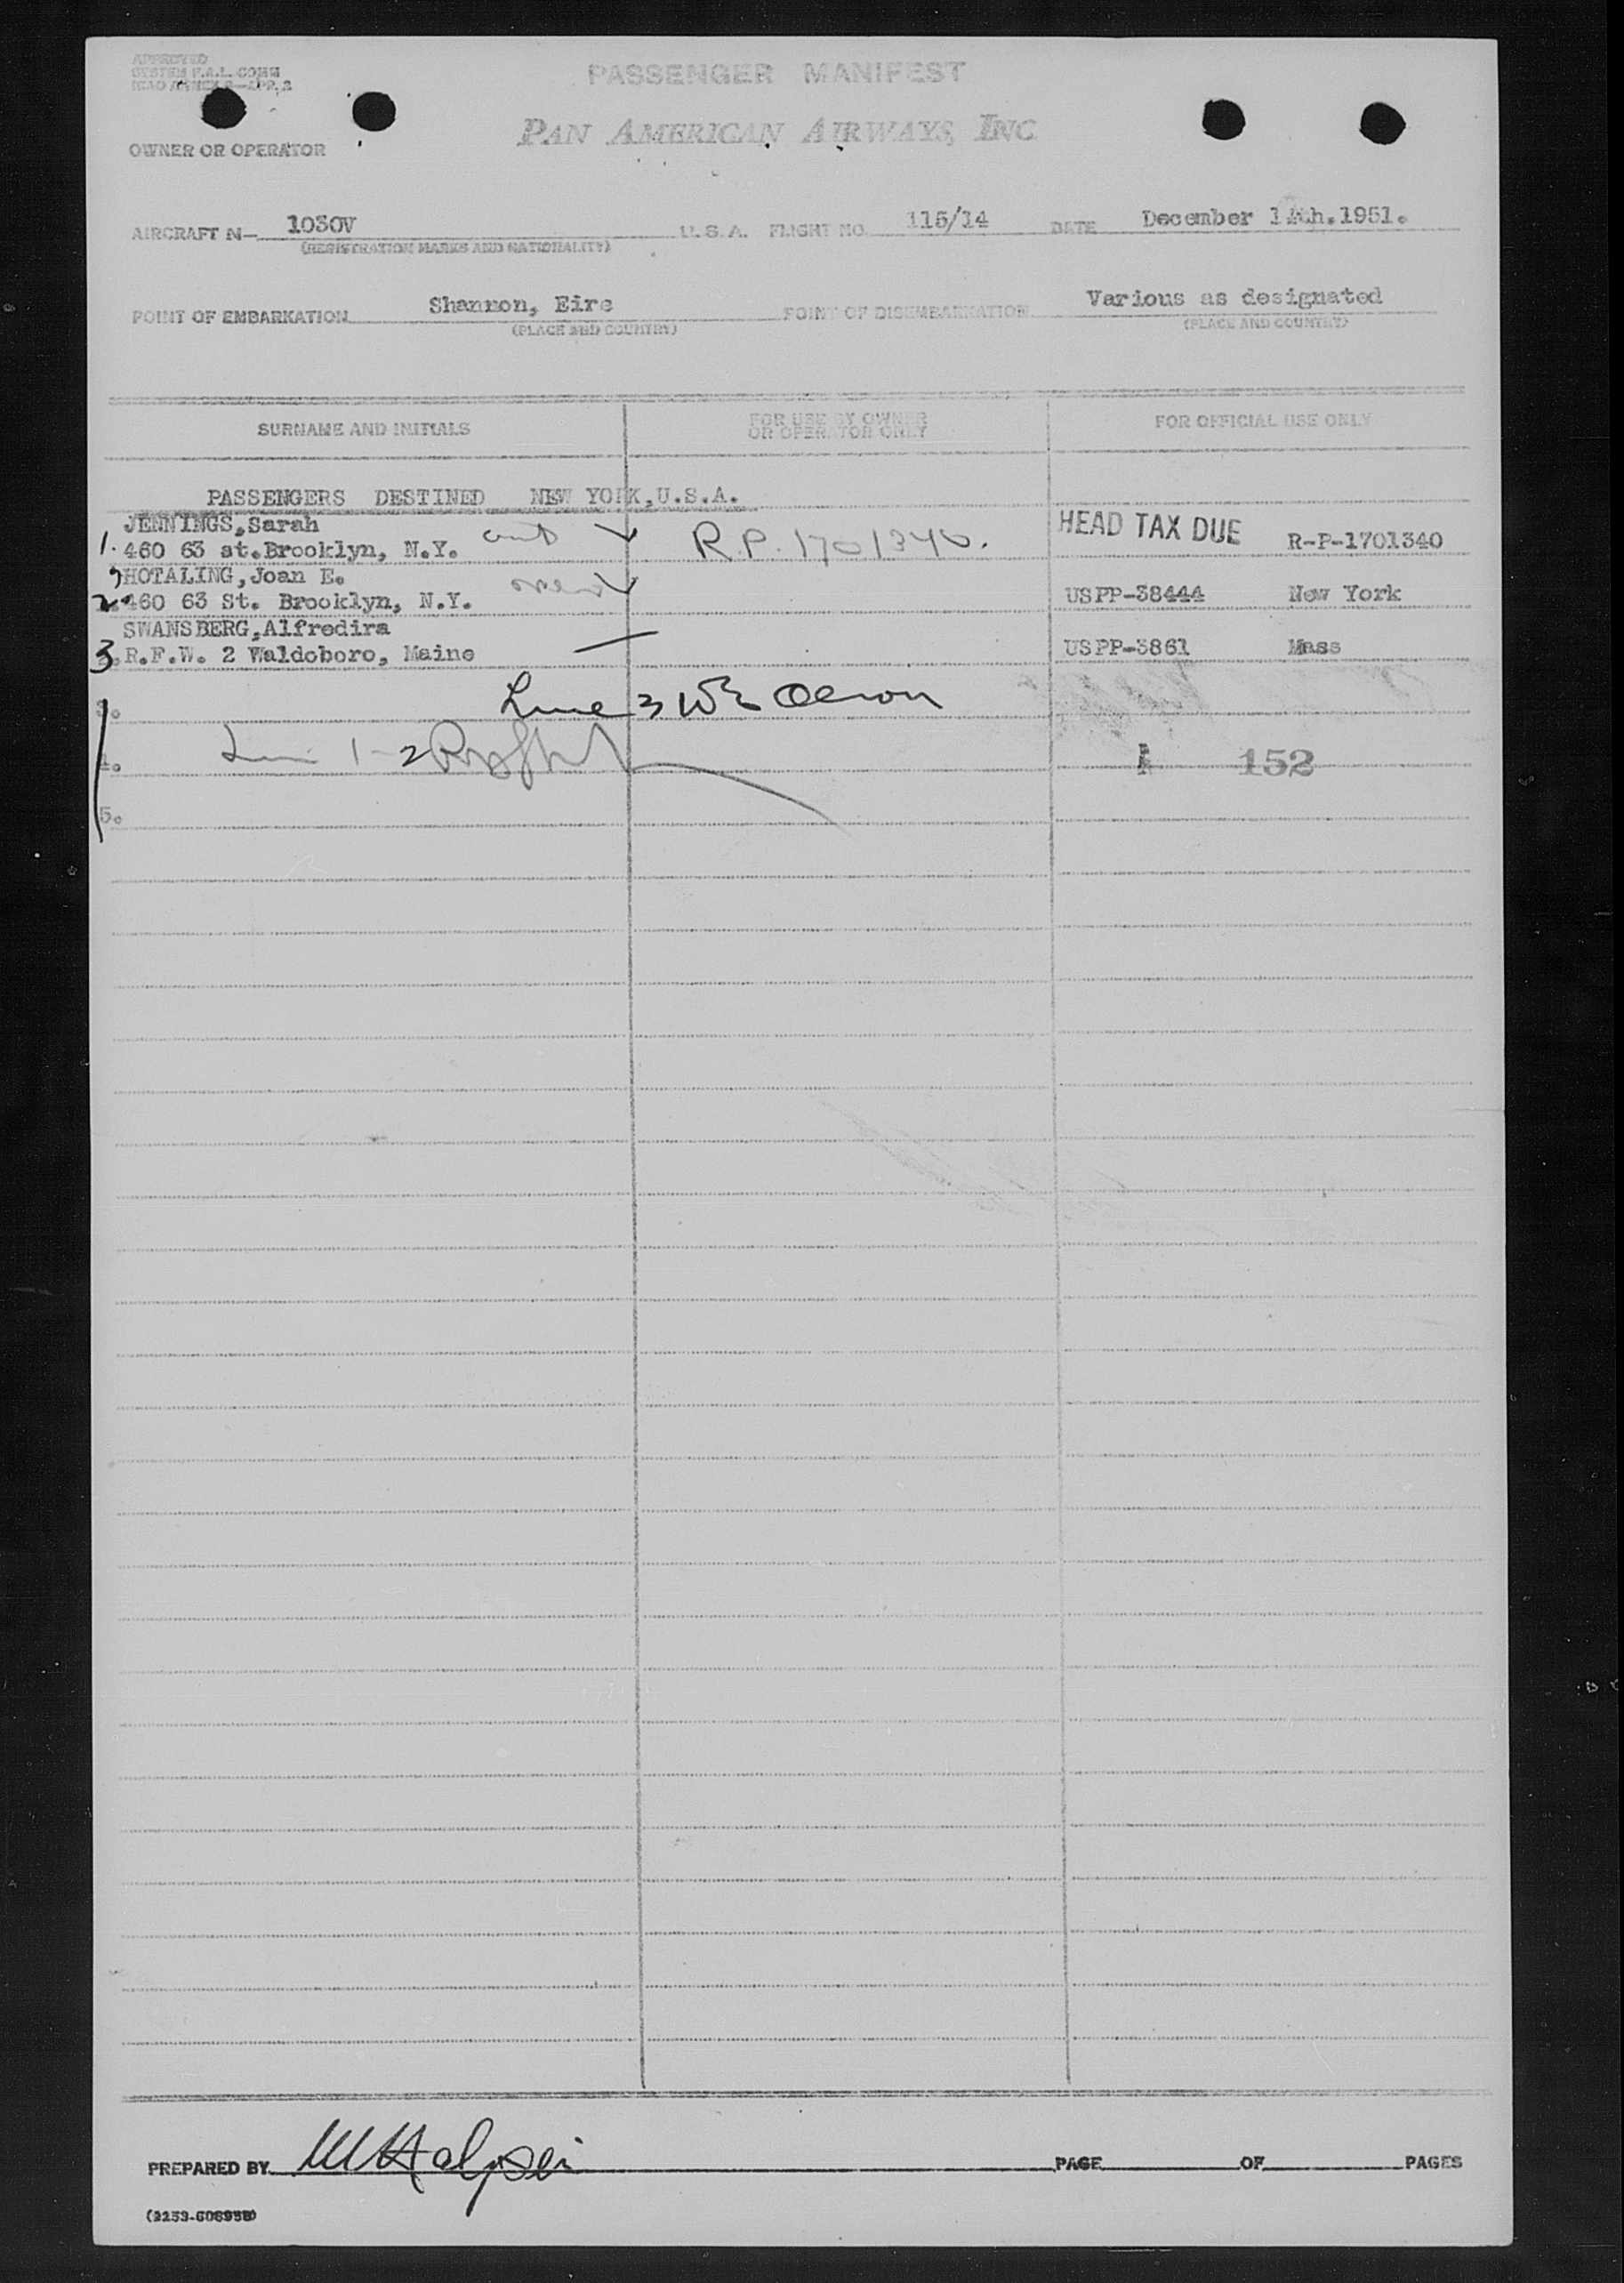 APPROVED
SYSTEM F.A.L. COMM
ICAO ANNEX 9—APP. 2
PASSENGER MANIFEST
PAN AMERICAN AIRWAYS, INC
OWNER OR OPERATOR
AIRCRAFT N— 1030V U.S.A. FLIGHT NO. 115/14 DATE December 14th.1951.
(REGISTRATION MARKS AND NATIONALITY)
POINT OF EMBARKATION Shannon, Eire POINT OF DISEMBARKATION Various as designated
(PLACE AND COUNTRY) (PLACE AND COUNTRY)
SURNAME AND INITIALS FOR USE BY OWNER OR OPERATOR ONLY FOR OFFICIAL USE ONLY
PASSENGERS DESTINED NEW YORK,U.S.A.
JENNINGS,Sarah
1. 460 63 st.Brooklyn, N.Y. R.P. 1701340. HEAD TAX DUE R-P-1701340
HOTALING,Joan E.
2. 460 63 St. Brooklyn, N.Y. USPP-38444 New York
SWANSBERG,Alfredira
3. R.F.W. 2 Waldoboro, Maine USPP-3861 Mass
3. Line 3
4. Line 1-2 152
5.
PREPARED BY PAGE OF PAGES